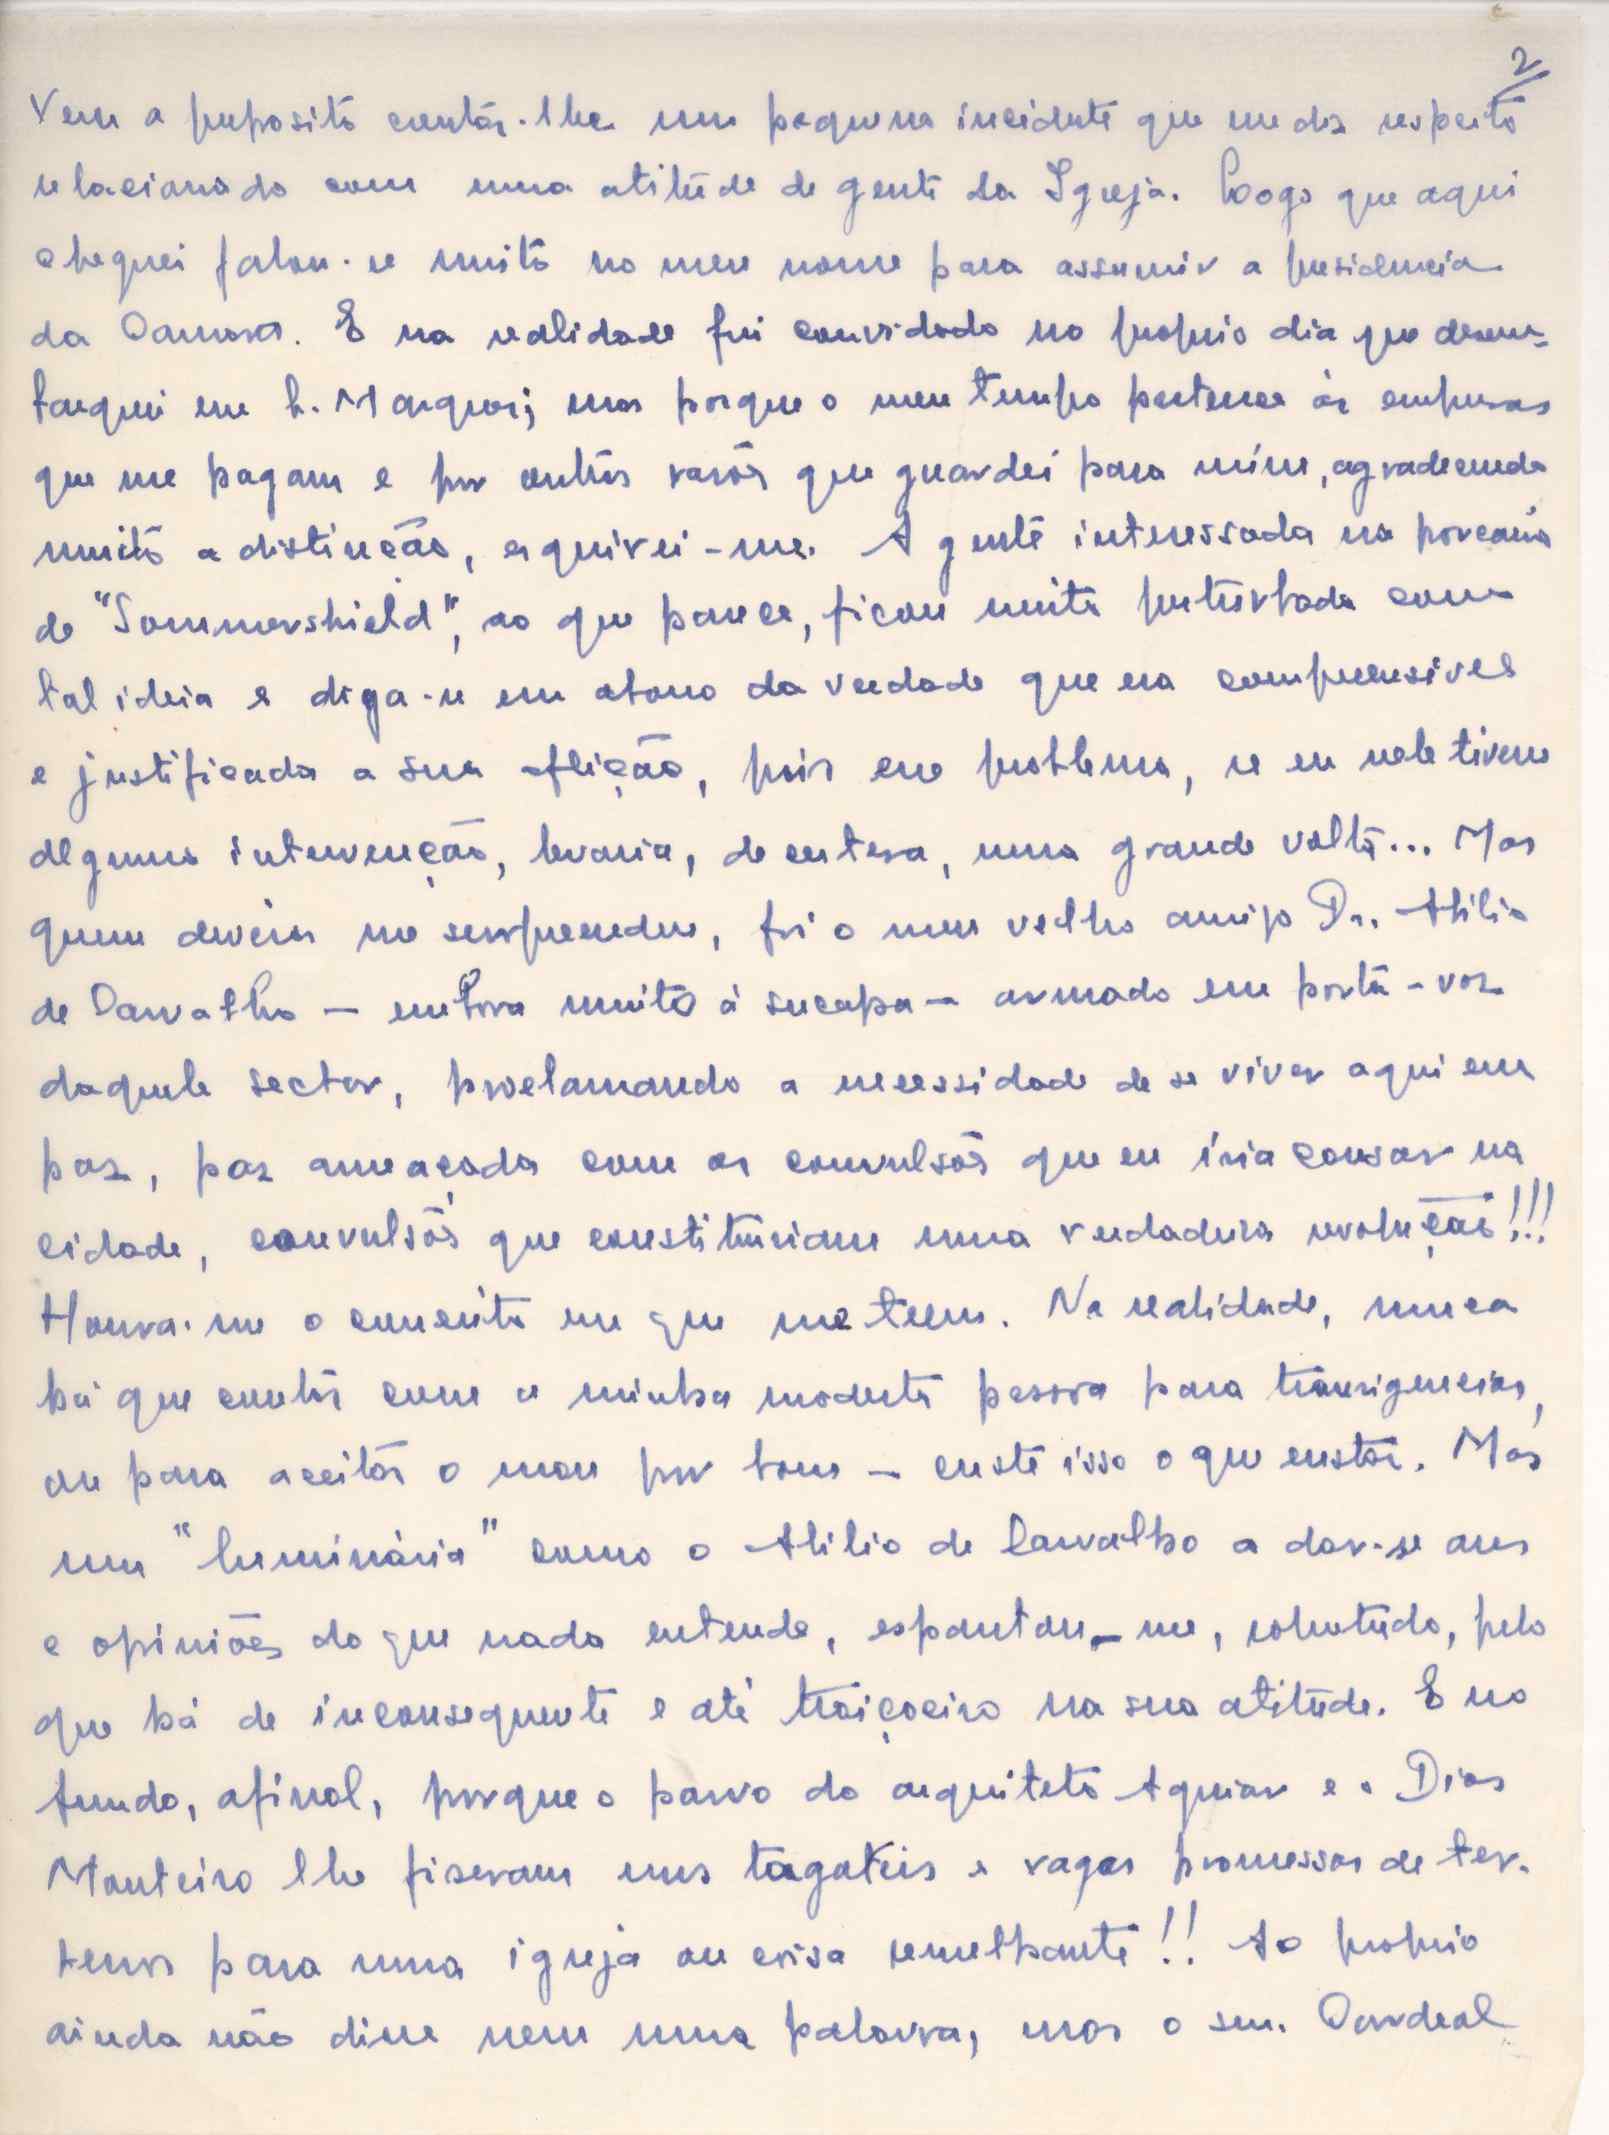 2
Vem a proposito contar-lhe um pequeno incidente que me diz respeito
relacionado com uma atitude de gente da Igreja. Logo que aqui
cheguei falou-se muito no meu nome para assumir a presidencia
da Camara. E na realidade fui convidado no proprio dia que desem-
barquei em L. Marques; mas porque o meu tempo pertence às empresas
que me pagam e por outras razões que guardei para mim, agradecendo
muito a distinção, esquivei-me. A gente interessada na porcaria
de "Sommershield", ao que parece, ficou muito perturbada com
tal ideia e diga-se em abono da verdade que era compreensivel
e justificada a sua aflição, pois esse problema, se eu nele tivesse
alguma intervenção, levaria, de certeza, uma grande volta... Mas
quem deveras me surpreendeu, foi o meu velho amigo Dr. Atilio
de Carvalho — embora muito à sucapa — armado em porta-voz
daquele sector, proclamando a necessidade de se viver aqui em
paz, paz ameaçada com as convulsões que eu iria causar na
cidade, convulsões que constituiriam uma verdadeira revolução!!!
Honra-me o conceito em que me teem. Na realidade, nunca
há que contar com a minha modesta pessoa para transigencias,
ou para aceitar o mau por bom — custe isso o que custar. Mas
um "luminária" como o Atilio de Carvalho a dar-se ares
e opiniões do que nada entende, espantou-me, sobretudo, pelo
que há de inconsequente e até traiçoeiro na sua atitude. E no
fundo, afinal, porque o parvo do arquiteto Aguiar e o Dias
Monteiro lhe fizeram uns tagateis e vagas promessas de ter-
renos para uma igreja ou coisa semelhante!! Ao proprio
ainda não disse nem uma palavra, mas o snr. Cardeal